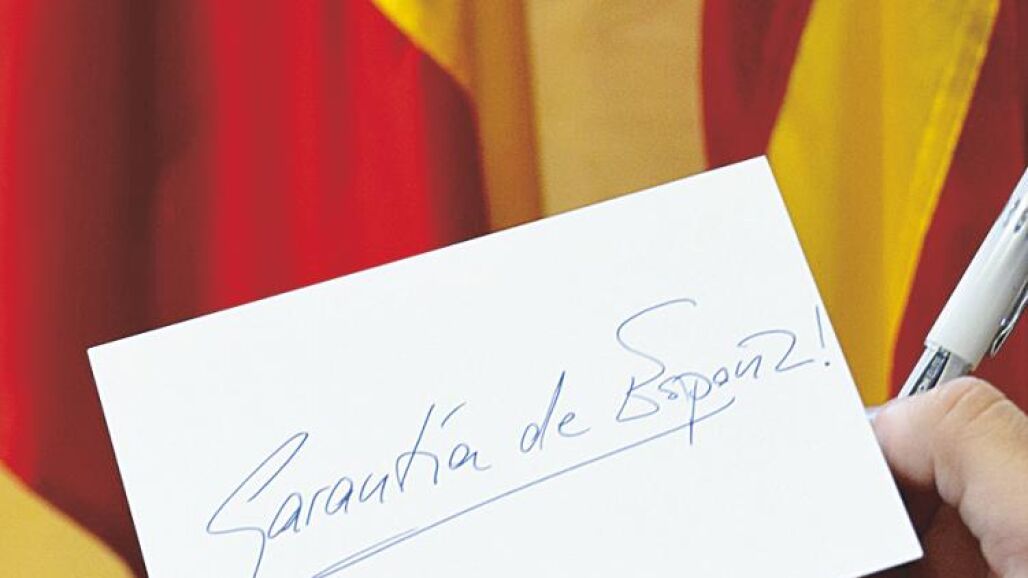 Garantía de España!